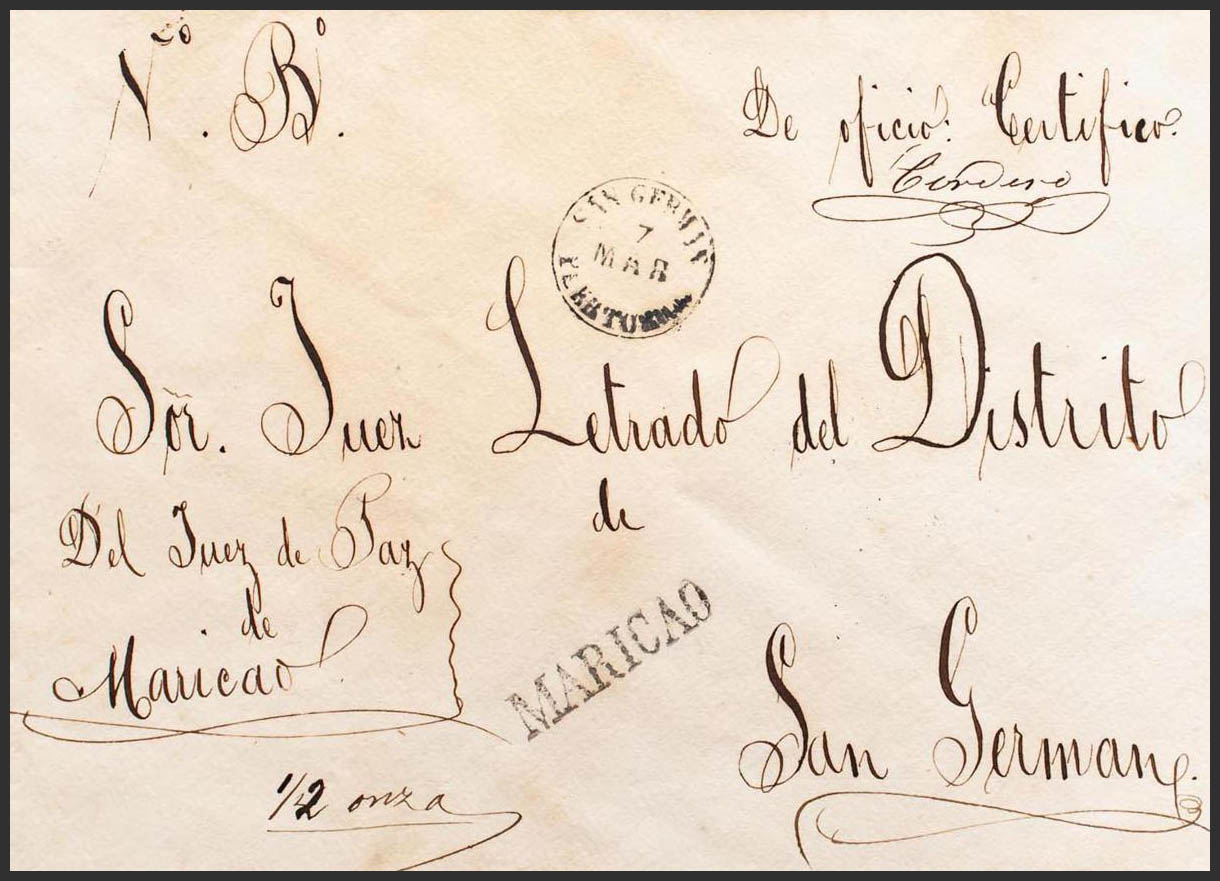 Nº. Bº.
De oficio. Certifico.
Cordero
SAN GERMAN
7
MAR
PUERTO
Sör. Juez Letrado del Distrito
de
San German
Del Juez de Paz
de
Maricao
MARICAO
1/2 onza